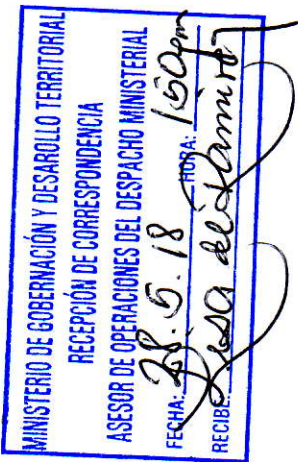 MINISTERIO DE GOBERNACIÓN Y DESAROLLO TERRITORIAL
RECEPCIÓN DE CORRESPONDENCIA
ASESOR DE OPERACIONES DEL DESPACHO MINISTERIAL
FECHA: 28.5.18 HORA: 1:50pm
RECIBE: Rosa del Ramirez